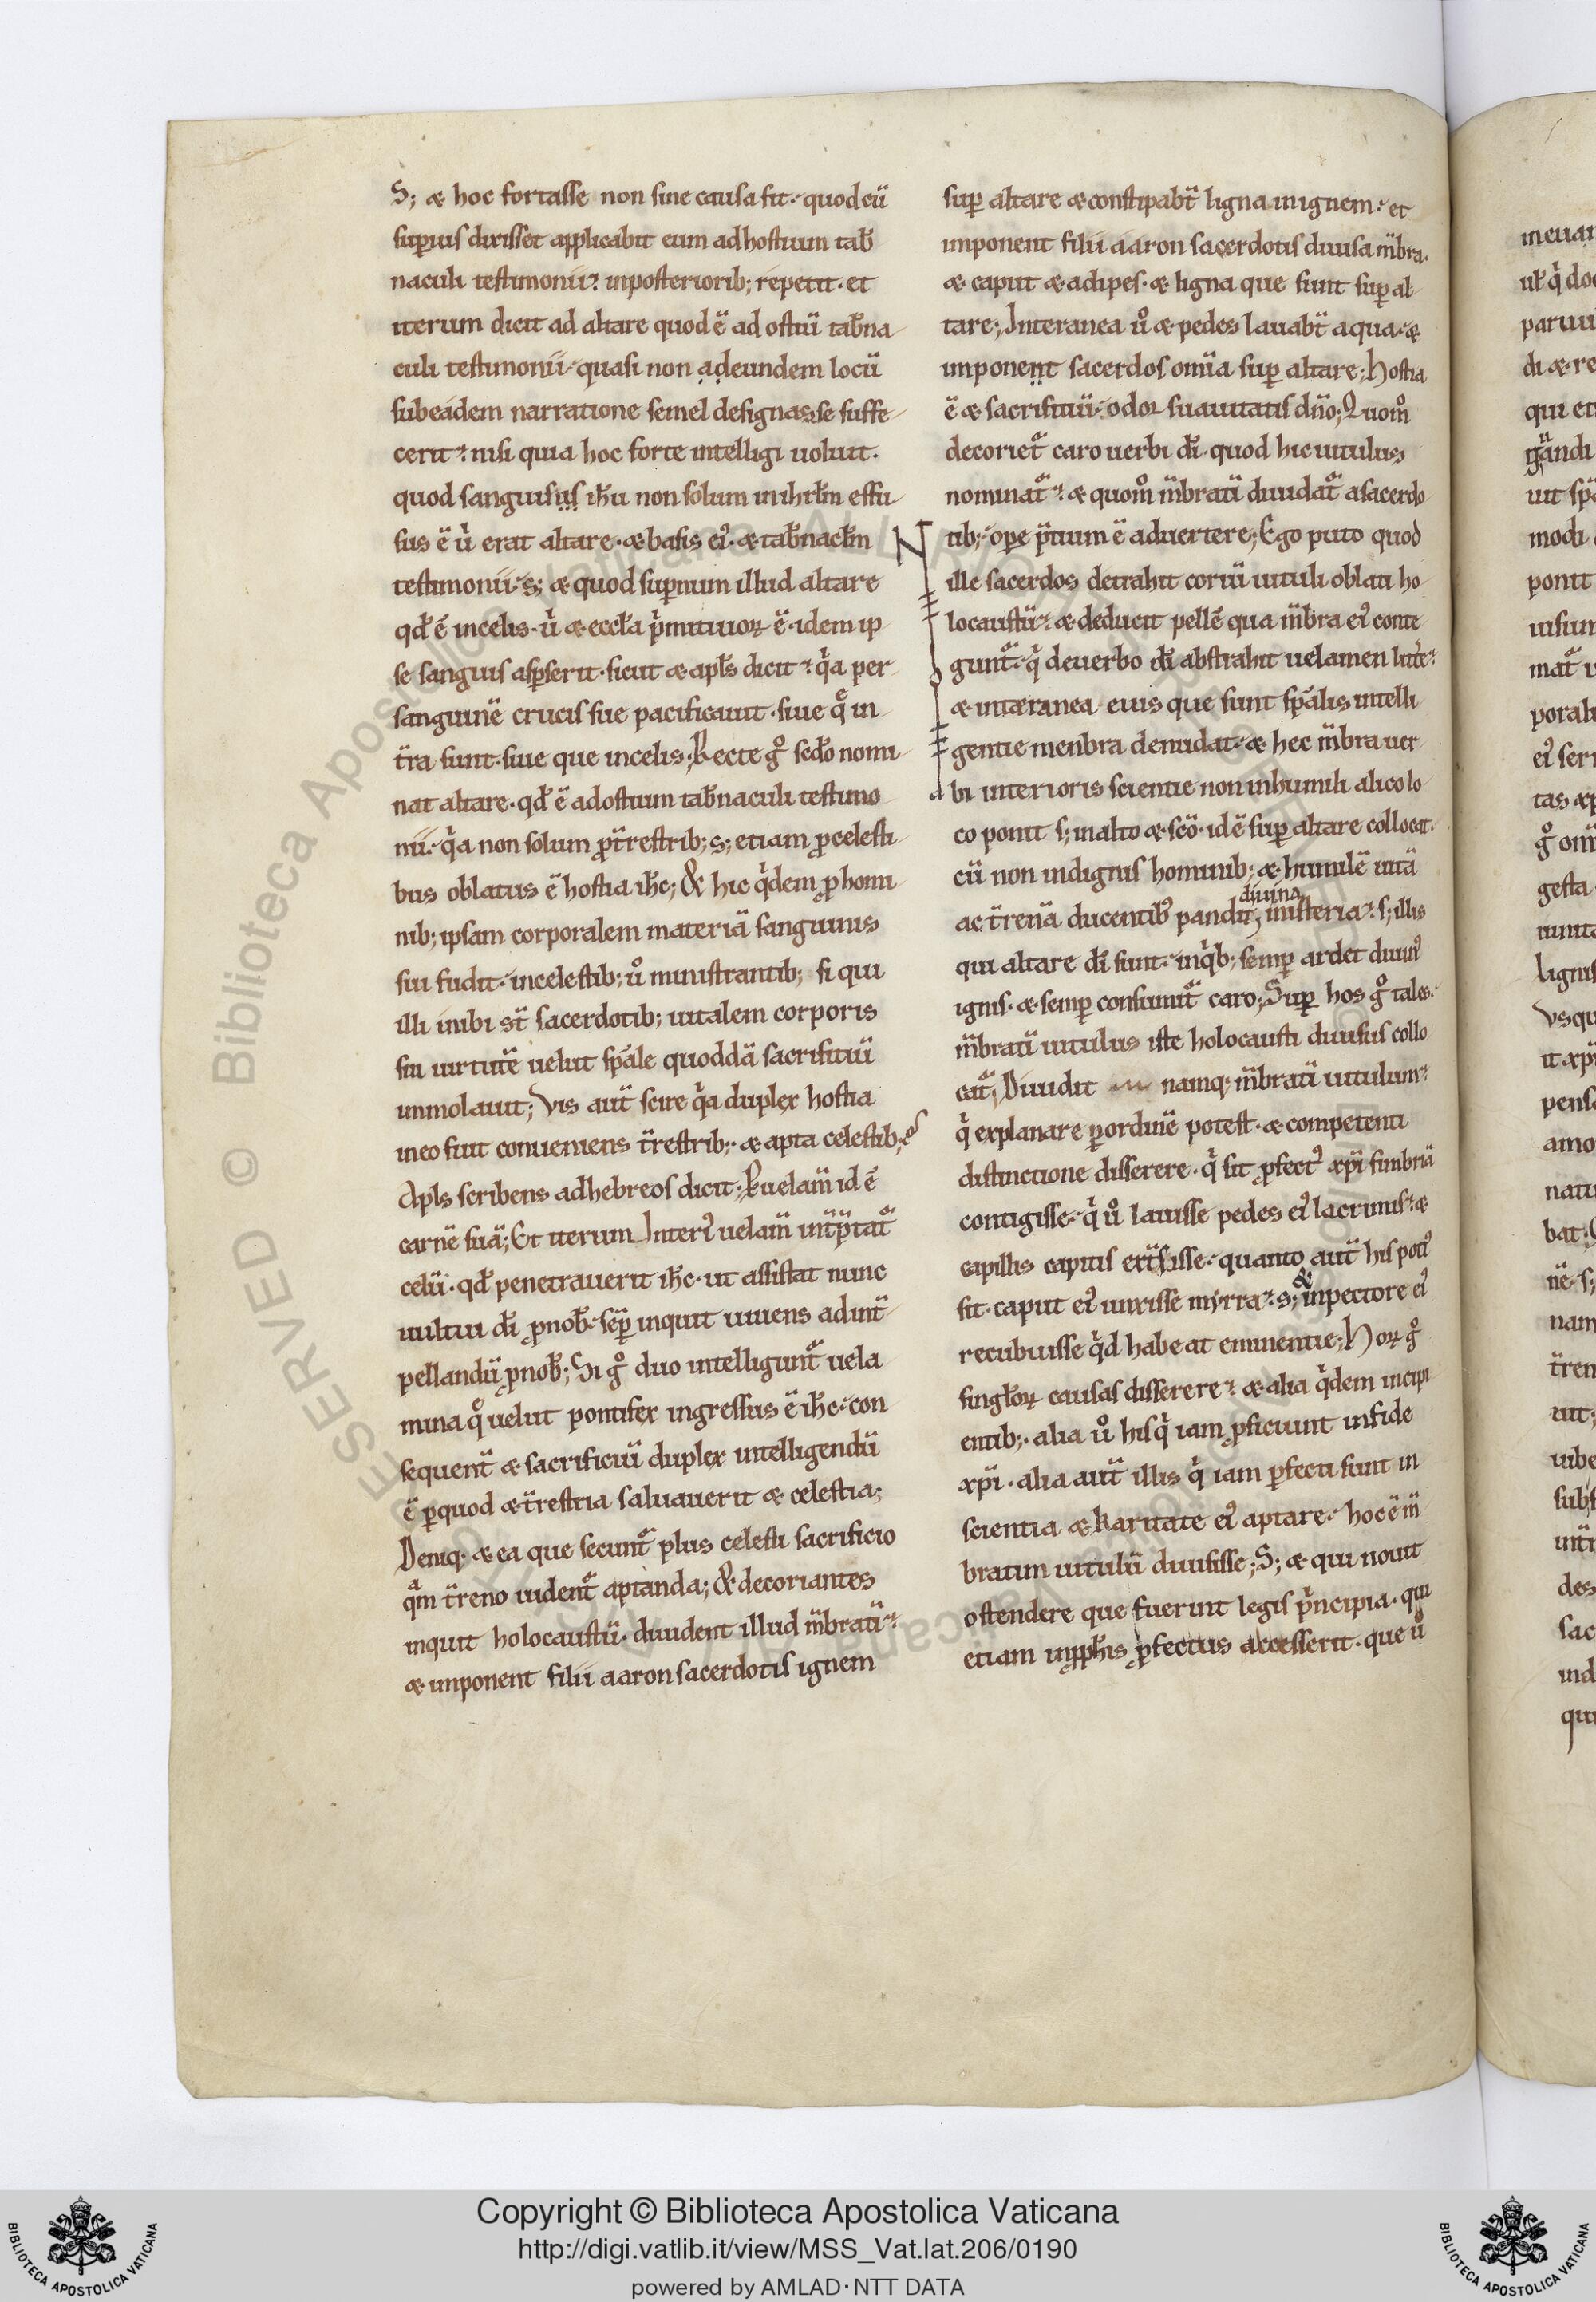 S; æ hoc fortasse non sine causa fit. quod cū
superius dixisset applicabit eum ad hostium tab̄
naculi testimonii: in posteriorib; repetit. et
iterum dicit ad altare quod ē ad ostiū tab̄na
culi testimonii. quasi non ad eundem locū
sub eadem narratione semel designasse suffe
cerit: nisi quia hoc forte intelligi uoluit.
quod sanguis us ih̄u non solum in ihrl̄m effu
sus ē ů erat altare. æ basis ei⁹. æ tab̄nacl̄m
testimonii. s; æ quod supernum illud altare
qđ ē in celis. ů æ eccl̄a p̍mitiuoꝝ ē. idem ip
se sanguis asperserit. sicut æ apl̄s dicit: q̍a per
sanguinē crucis sue pacificauit. siue q̄ in
t̄ra sunt. siue que in celis; Recte g° sedo nomi
nat altare. qđ ē ad ostium tab̄naculi testimo
nii. q̍a non solum ꝓ t̄restrib; s; etiam ꝓ celesti
bus oblatus ē hostia ih̄c; & hic q̍dem ꝓ homi
nib; ipsam corporalem materiā sanguinis
sui fudit. in celestib; u° ministrantib; si qui
illi inibi st̄ sacerdotib; uitalem corporis
sui uirtutē uelut sp̄ale quoddā sacrifitiū
immolauit; Vis aut̄ scire q̍a duplex hostia
in eo fuit conueniens t̄restrib; æ apta celestib;
Apl̄s scribens ad hebreos dicit. P̱ uelam̄ id ē
carnē suā; Et iterum Interi⁹ uelam̄ int̄p̄tat̄
celū. qđ penetrauerit ih̄c. ut assistat nunc
uultui dī ꝓ nob̄. sep̄ inquit uiuens ad int̄
pellandū ꝓ nob̄; Si g° duo intelligunt̄ uela
mina q° uelut pontifex ingressus ē ih̄c. con
sequent̄ æ sacrificiū duplex intelligendū
ē ꝑ quod æ t̄restria saluauerit æ celestia;
Deniq; æ ea que secunt̄ plus celesti sacrificio
q̄m t̄reno uident̄ aptanda; & decoriantes
inquit holocaustū. diuident illud m̄bratī:
æ imponent filii aaron sacerdotis ignem
sup̱ altare æ constipabt̄ ligna in ignem. et
imponent filii aaron sacerdotis diuisa m̄bra.
æ caput æ adipes. æ ligna que sunt sup̱ al
tare; Interanea u° æ pedes lauabt̄ aqua. æ
imponent sacerdos omīa sup̱ altare; Hostia
ē æ sacrifitiū. odoꝝ suauitatis dn̄o; Quom°
decoriet̄ caro uerbi dī. quod hic uitulus
nominat̄: æ quom° m̄bratī diuidat̄ a sacerdo
tib; ope p̄tium ē aduertere; Ego puto quod
ille sacerdos detrahit coriū uituli oblati ho
locaustū: æ deducit pellē qua m̄bra ei⁹ conte
gunt̄. q̍ de uerbo dī abstrahit uelamen litt̄e:
æ interanea euis que sunt sp̄alis intelli
gentie menbra denudat. æ hec m̄bra uer
bi interioris scientie non in humili alico lo
co ponit s; in alto æ scō. id ē sup̱ altare collocat.
cū non indignis hominib; æ humilē uitā
ac t̄renā ducentib⁹ pandit divina misteria: s; illis
qui altare dī sunt. in q̍b; semp̱ ardet diuin⁹
ignis. æ semp̱ consumit̄ caro; Sup̱ hos g° tales.
m̄bratī uitulus iste holocausti diuisus collo
cat̄; Diuidit namq; m̄bratī uitulum:
q̍ explanare p̱ ordinē potest. æ competenti
distinctione disserere. q̍ sit ꝓfect⁹ xp̄i fimbriā
contigisse. q̍ u° lauisse pedes ei⁹ lacrimis: æ
capillis capitis ext̄sisse. quanto aut̄ his poti⁹
sit. caput ei⁹ unxisse myrra: s; & in pectore ei⁹
recubuisse q̍d habeat eminentie; Hoꝝ g°
singl̄oꝝ causas disserere: æ alia q̍dem incipi
entib; alia u° his q̍ iam ꝓficiunt in fide
xp̄i. alia aut̄ illis q̍ iam p̱fecti sunt in
scientia æ karitate ei⁹ aptare. hoc ē m̄
bratim uitulū diuisisse; S; æ qui nouit
ostendere que fuerint legis p̍ncipia. qui
etiam in ꝓph̄is ꝓfectus accesserit. que ū
Copyright © Biblioteca Apostolica Vaticana
http://digi.vatlib.it/view/MSS_Vat.lat.206/0190
powered by AMLAD·NTT DATA